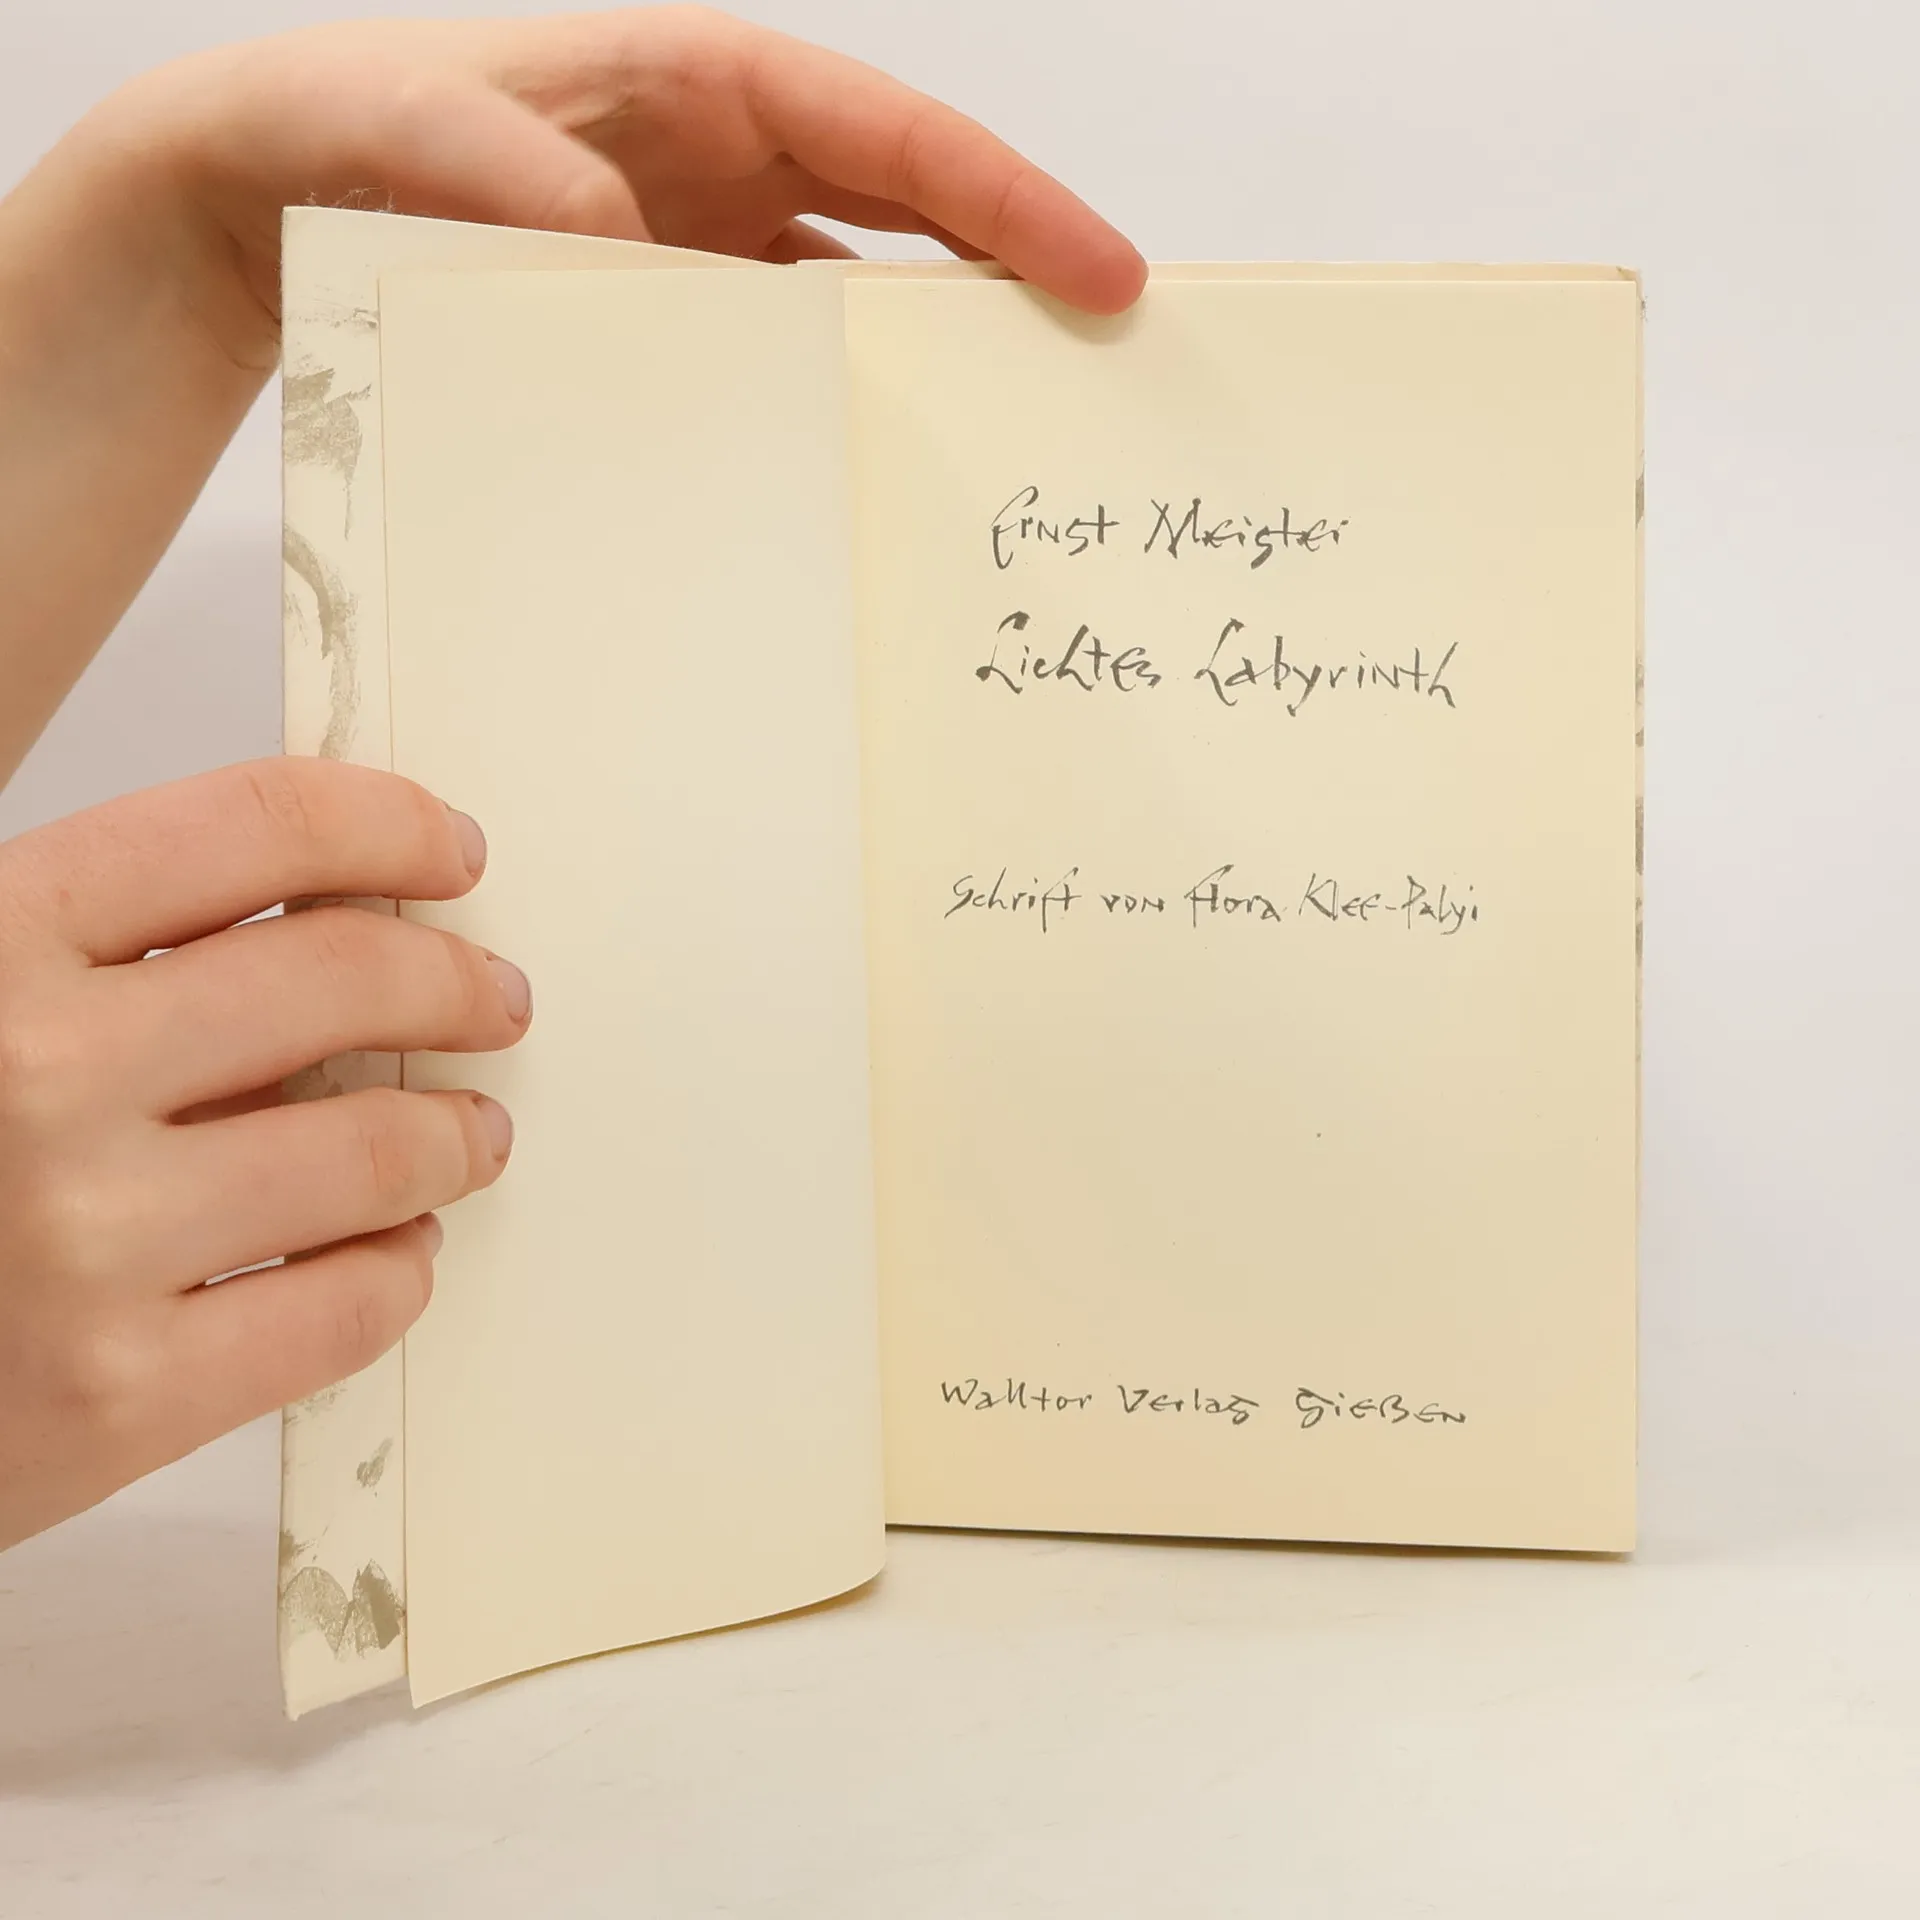 Ernst Meister
Lichtes Labyrinth
Schrift von Flora Klee-Palyi
Walltor Verlag Gießen